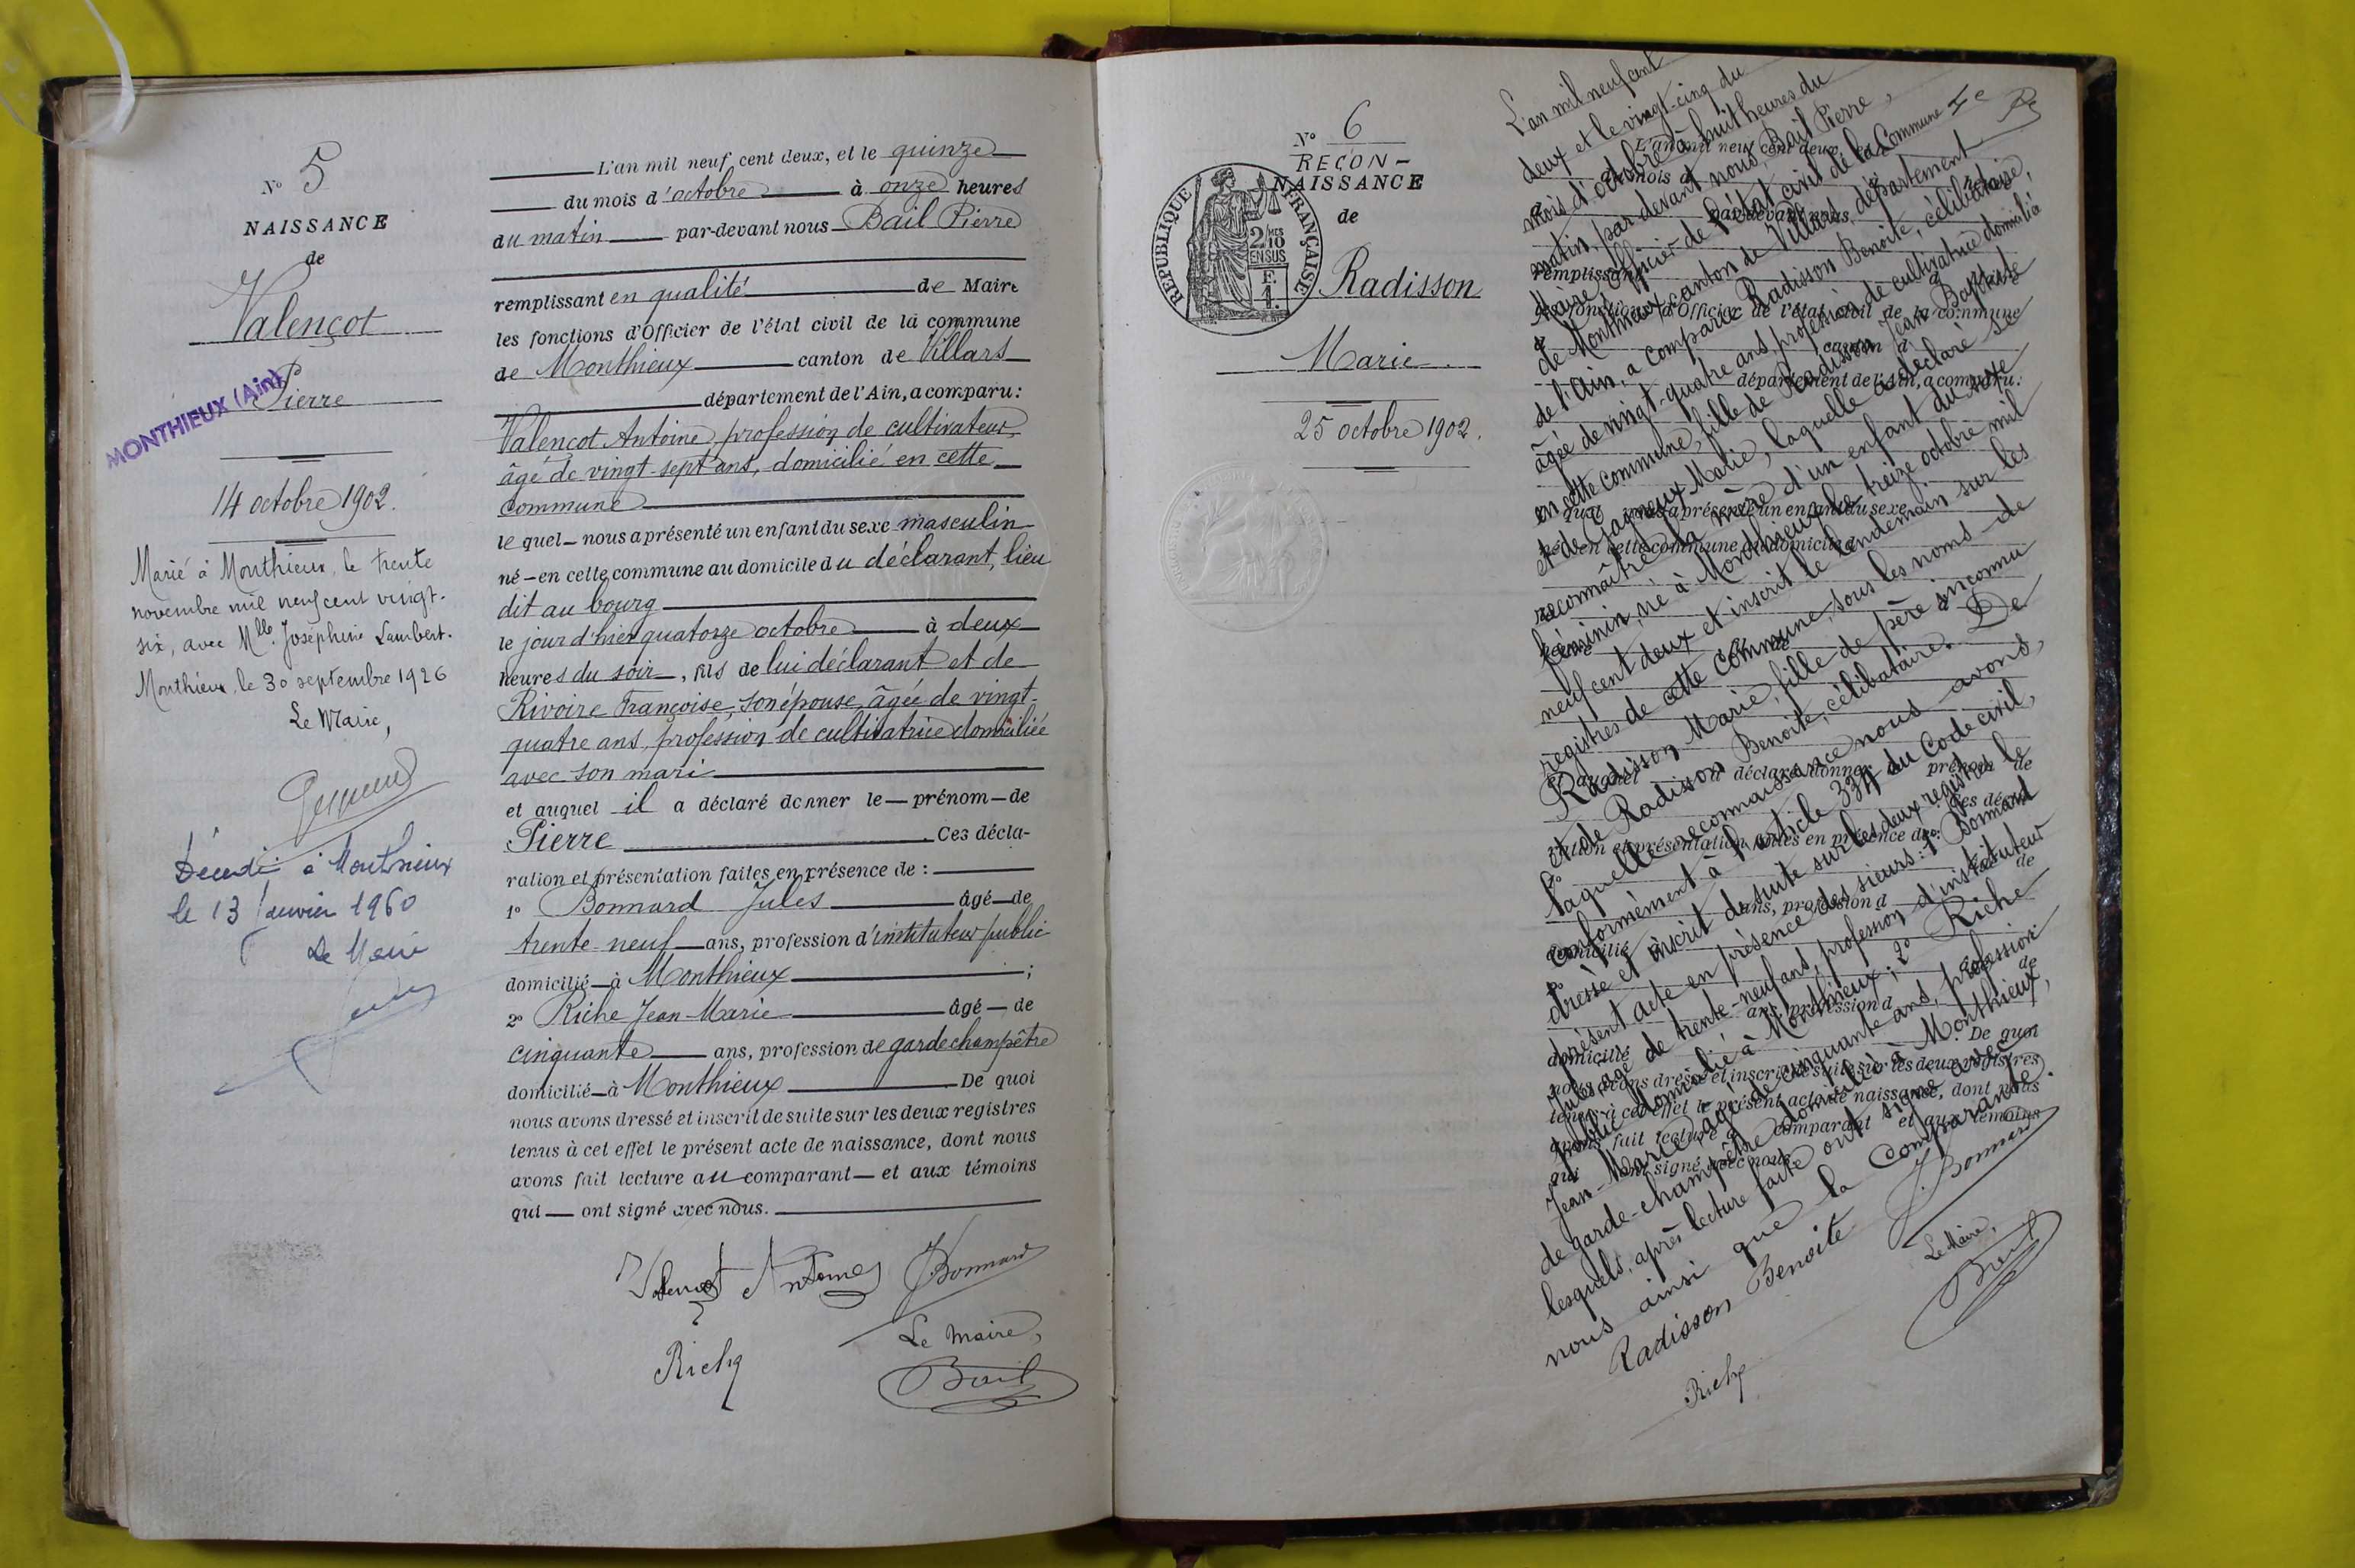 N° 5
NAISSANCE
de
Valençot
Pierre
MONTHIEUX (Ain)
14 octobre 1902.
Marié à Monthieux, le trente
novembre mil neuf cent vingt-
six, avec Mlle Joséphine Lambert.
Monthieux, le 30 septembre 1926
Le Maire,
Décédé à Monthieux
le 13 Janvier 1960
Le Maire
L'an mil neuf cent deux, et le quinze
du mois d'octobre à onze heures
du matin par-devant nous Bail Pierre
remplissant en qualité de Maire
les fonctions d'Officier de l'état civil de la commune
de Monthieux canton de Villars
département de l'Ain, a comparu:
Valençot Antoine, profession de cultivateur
âgé de vingt-sept ans, domicilié en cette
commune
lequel nous a présenté un enfant du sexe masculin
né en cette commune au domicile du déclarant, lieu
dit au bourg
le jour d'hier quatorze octobre à deux
heures du soir, fils de lui déclarant et de
Rivoire Françoise, son épouse, âgée de vingt-
quatre ans, profession de cultivatrice domiciliée
avec son mari
et auquel il a déclaré donner le prénom de
Pierre Ces décla-
ration et présentation faites en présence de :
1° Bonnard Jules âgé de
trente-neuf ans, profession d'instituteur public
domicilié à Monthieux ;
2° Riche Jean-Marie âgé de
cinquante ans, profession de garde champêtre
domicilié à Monthieux De quoi
nous avons dressé et inscrit de suite sur les deux registres
tenus à cet effet le présent acte de naissance, dont nous
avons fait lecture au comparant et aux témoins
qui ont signé avec nous.
Valençot Antoine J. Bonnard
Riche
Le Maire,
Bail
N° 6
RECON-
NAISSANCE
de
RÉPUBLIQUE FRANÇAISE
2/10 EN SUS
F. 1.
Radisson
Marie
25 octobre 1902.
L'an mil neuf cent
deux et le vingt-cinq du
mois d'octobre à huit heures du
matin, par devant nous, Bail Pierre,
Maire, officier de l'état civil de la Commune
de Monthieux, canton de Villars, département
de l'Ain, a comparu Radisson Benoite, célibataire,
âgée de vingt-quatre ans, profession de cultivatrice domiciliée
en cette commune, fille de Radisson Jean Baptiste
et de Gagneux Marie, laquelle a déclaré se
reconnaître la mère d'un enfant du sexe
féminin, né à Monthieux le treize octobre mil
neuf cent deux et inscrit le lendemain sur les
registres de cette commune, sous les noms de
Radisson Marie, fille de père inconnu
et de Radisson Benoite, célibataire. De
laquelle reconnaissance nous avons,
conformément à l'article 334 du Code civil,
dressé et inscrit de suite sur les deux registres le
présent acte en présence des sieurs: 1° Bonnard
Jules, âgé de trente-neuf ans, profession d'instituteur
public, domicilié à Monthieux; 2° Riche
Jean-Marie, âgé de cinquante ans, profession
de garde-champêtre domicilié à Monthieux,
lesquels, après lecture faite ont signé avec
nous ainsi que la comparante.
Radisson Benoite J. Bonnard
Riche
Le Maire,
Bail